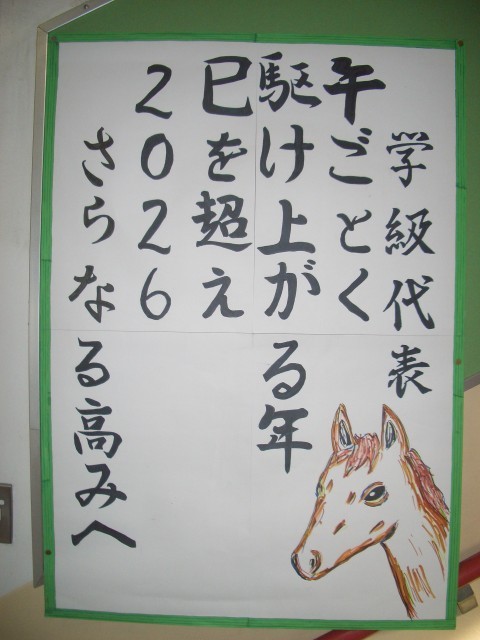 学級代表
午ごとく
駆け上がる年
巳を超え
2026
さらなる高みへ